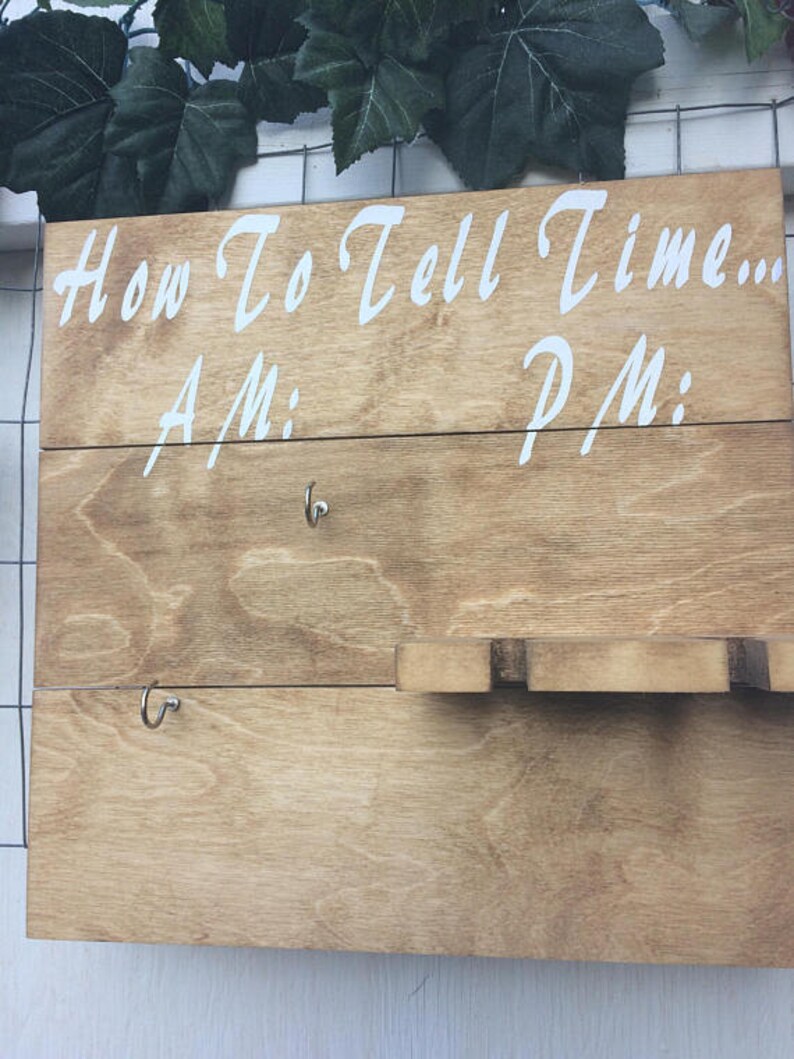 How To Tell Time...
AM: PM: